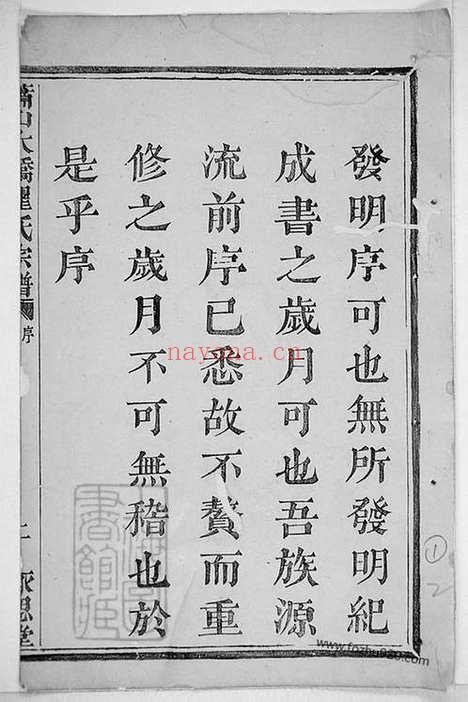 發明序可也無所發明紀
成書之歲月可也吾族源
流前序已悉故不贅而重
修之歲月不可無稽也於
是乎序
蕭山大橋 氏宗譜
序
二
思堂
nayona.cn
www.fozhu920.com
1
2